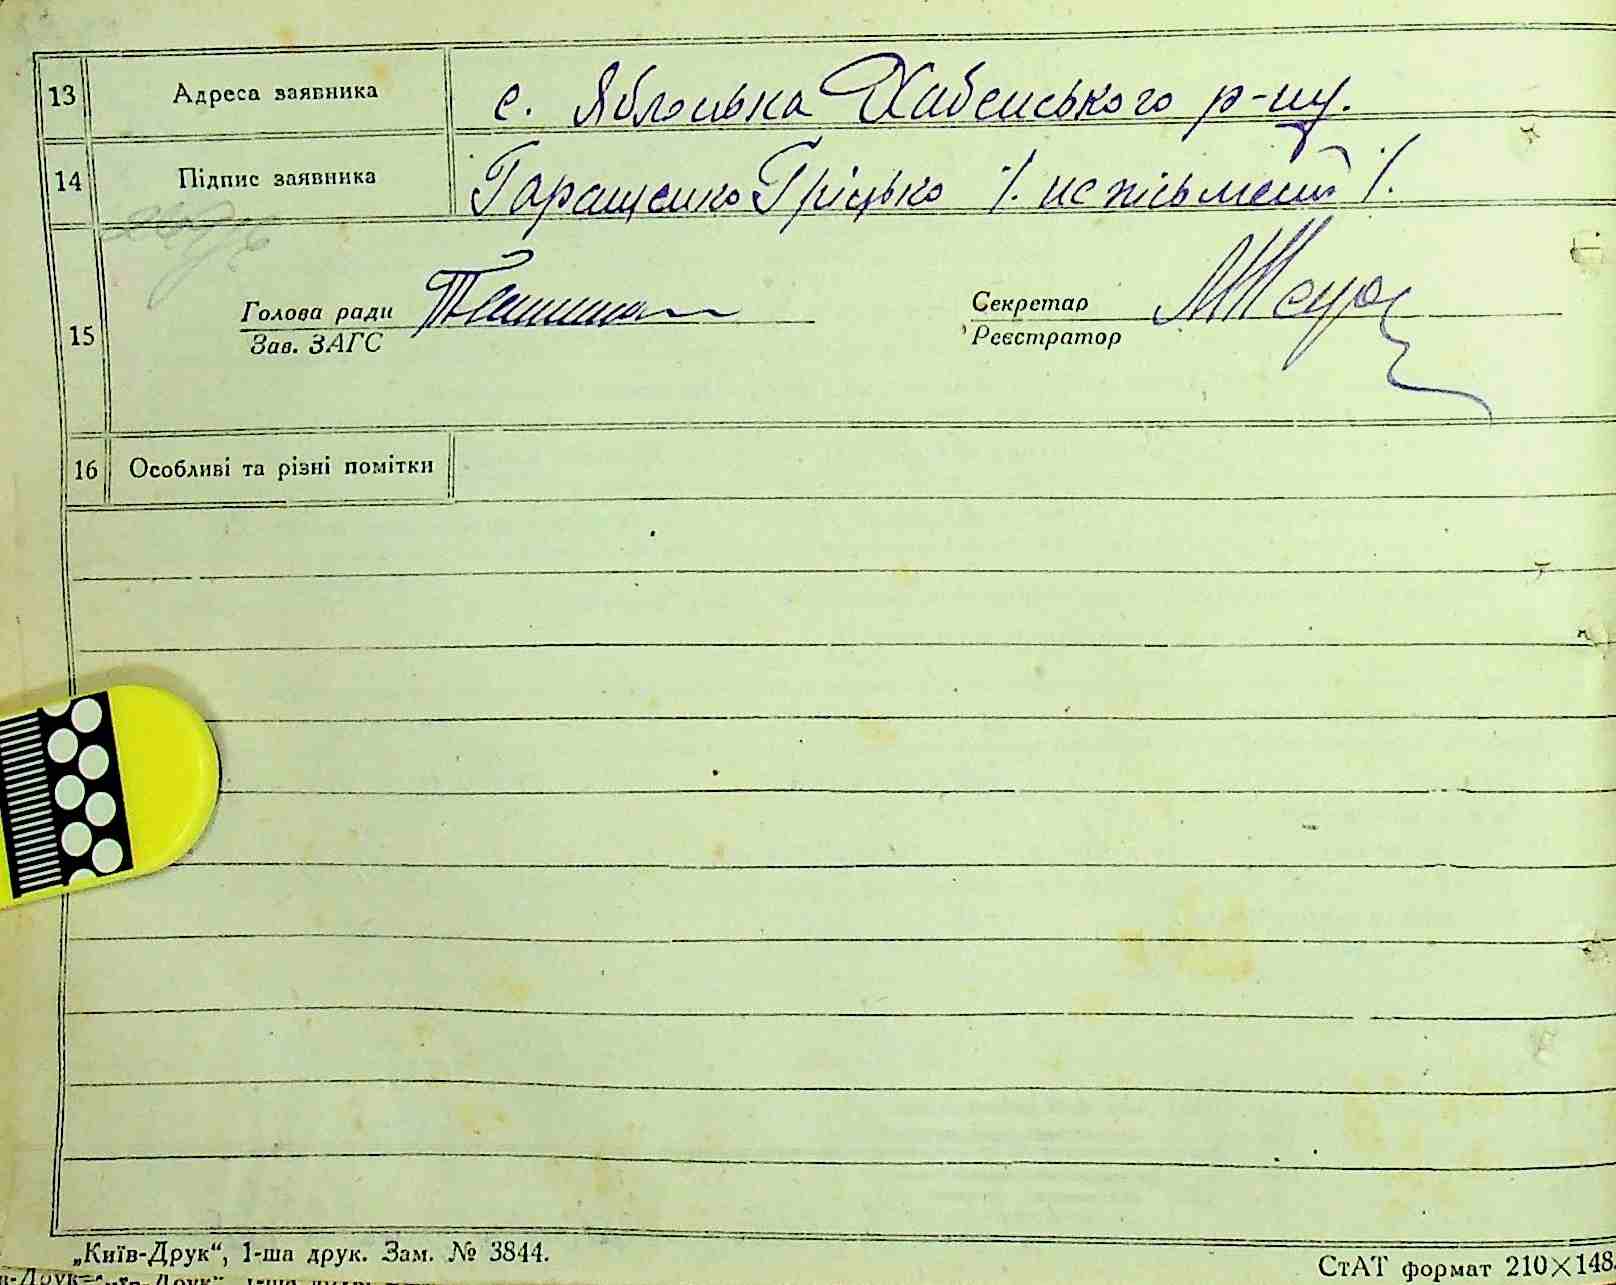 13 Адреса заявника с. Яблонька Хабенського р-ну.
14 Підпис заявника Гаращенко Гріцько /. не пісьмений /.
15
Голова ради Секретар
Зав. ЗАГС Реєстратор
16 Особливі та різні помітки
„Київ-Друк“, 1-ша друк. Зам. № 3844. СтАТ формат 210×148.